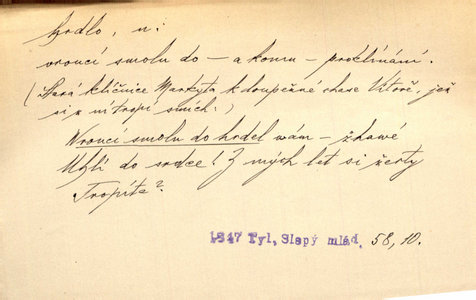 hrdlo, n:
vroucí smolu do – a komu – proklínání.
(Stará klíčnice Markyta k loupežné chase která, jež
si z ní tropí smích:)
Vroucí smolu do hrdel vám – žhavé
Uhlí do srdce! Z mých let si žerty
Tropíte?
1847 Tyl, Slepý mlád. 58, 10.